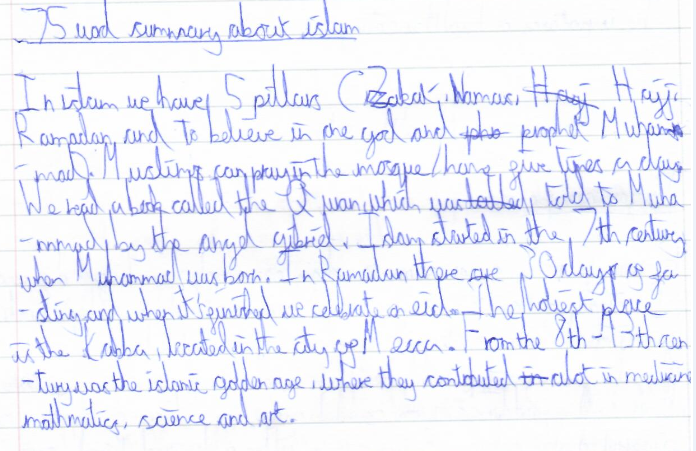 75 word summary about islam
In islam we have 5 pillars (Zakat, Namaz, Hajj Hajj.
Ramadan, and To believe in one god and pho prophet Muham
-mad). Muslims can pray in the mosque/home five times a day.
We read a book called the Quran, which was called told to Muha
-mmad, by the angel gibriel. Islam started in the 7th century
when Muhammad was born. In Ramadan there are 30 days of fa
-sting and when it's finished we celebrate on eid. The holiest place
is the Kabba, located in the city of Mecca. From the 8th-13th cen
-tury was the islamic golden age, where they contributed in alot in medicine
mathmatics, science and art.